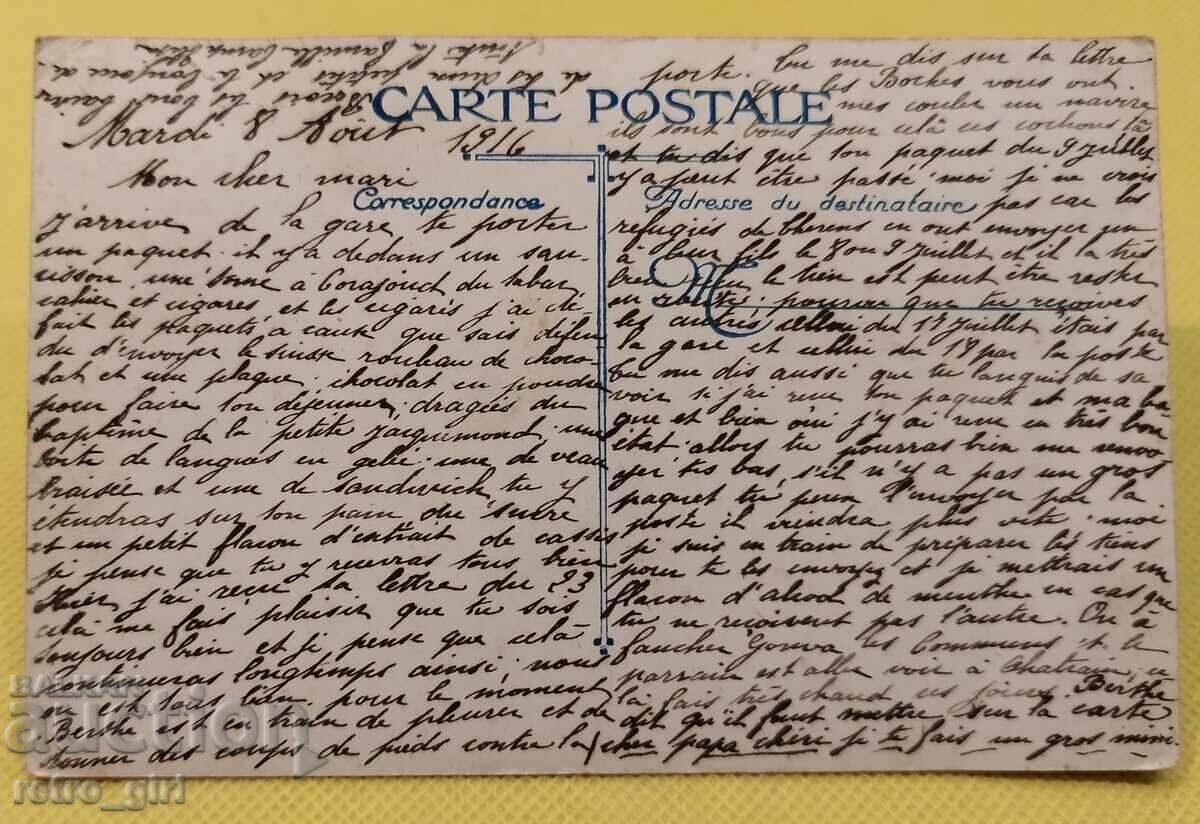 CARTE POSTALE
Correspondance
Adresse du destinataire
M
Mardi 8 Août 1916
Mon cher mari
j'arrive de la gare te porter
un paquet il y a dedans un sau-
cisson, une tome à Corajoud du tabac
cahier et cigares, et les cigaris j'ai dé-
fait les paquets à cause que sais défen
du d'envoyer le suisse rouleau de choco-
lat et une plaque, chocolat en poudre
pour faire ton déjeuner, dragées du
baptême de la petite Jaquemond une
boite de langues en gelée une de veau
braisée et une de sandwich, tu y
étendras sur ton pain du sucre
et un petit flacon d'extrait de cassis
je pense que tu y recevras tous bien
Hier j'ai recu ta lettre du 23
celà me fais plaisir que tu sois
toujours bien et je pense que celà
continueras longtemps ainsi, nous
en est tous bien pour le moment
Berthe est en train de pleurer et de
donner des coups de pieds contre la
porte. Tu me dis sur ta lettre
que les Boches vous ont
mes couler un navire
ils sont bons pour celà ces cochons là
et tu dis que ton paquet du 9 Juillet
y a peut être passé moi je ne crois
pas car les
refugiés de Cherens en ont envoyer un
à leur fils le 8 ou 9 Juillet et il la très
bien le tien est peut être rester
en route; pourvu que tu reçoives
les autres cellui du 17 Juillet étais par
la gare et cellui du 18 par la poste
tu me dis aussi que tu languis de sa
voir si j'ai recu ton paquet et ma ba
gue et bien oui j'y ai recu en très bon
état allors tu pourras bien me renvo
yer tes bas, s'il n'y a pas un gros
paquet tu peux l'envoyer par la
poste il viendra plus vite. moi
je suis en train de préparer les tiens
pour te les envoyer et je mettrais un
flacon d'alcool de menthe en cas que
tu ne recoivent pas l'autre. On à
faucher Gonva les Communs et le
parrain est aller voir à Chatrain,
la fais très chaud ces jours. Berthe
dit qu'il faut mettre sur la carte
cher papa chéri je te fais un gros mimi
Recois les bons baisers
de tes deux petites et le bonjour de
toute la famille
BALKAN
auction
retro_girl